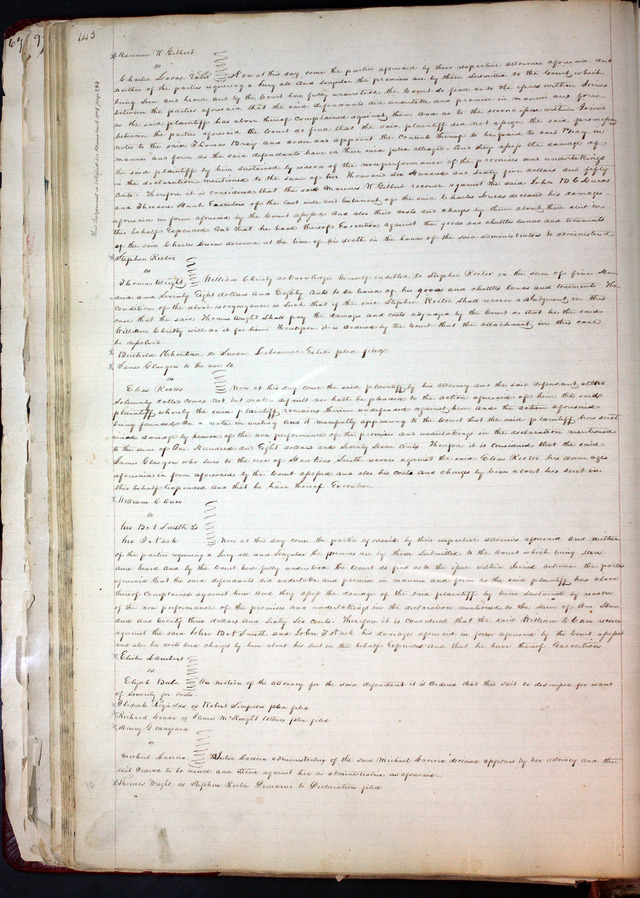 143
Marinus W Gilbert
vs
Charles Lucas Extrs Now at this day come the parties aforesaid by their respective attornies aforesaid and
neither of the parties requiring a Jury all and singular the premises are by them submitted to the Court, which
being seen and heard and by the Court here fully understood the Court do find as to the issues within Joined
between the parties aforesaid that the said defendants did undertake and promise in manner and form
as the said plaintiff has above thereof complained against them and as to the second issue within Joined
between the parties aforesaid the Court do find that the said plaintiff did not assign the said promissory
notes to the said Thomas Bray and order and appoint the Contents thereof to be paid to said Bray in
manner and form as the said defendants have in their said plea alleged. And they assess the damage of
the said plaintiff by him sustained by reason of the nonperformance of the promises and undertakings
in the declaration mentioned to the sum of two Thousand Six Hundred and Sixty five dollars and fifty
Cents. Therefore it is considered that the said Marinus W Gilbert recover against the said John B C Lucas
and Theodore Hunt Executors of the last will and testament of the said Charles Lucas deceased his damages
aforesaid in form aforesaid by the Court assessed And also his costs and charges by him about this suit in
this behalf Expended And that he have thereof Execution against the goods and chattles lands and tenements
of the said Charles Lucas deceased at the time of his death in the hands of the said administrators to administered
Stephen Rector
vs
Thomas Wright William Christy acknowledges himself indebted to Stephen Rector in the sum of five Hun
dred and Seventy Eight dollars and Eighty Cents to be levied of his goods and chattles lands and tenements The
Condition of the above recognizance is Such that if the said Stephen Rector Shall recover a Judgment in this
case that the said Thomas Wright Shall pay the damages and costs adjudged by the Court or that he the said
William Christy will do it for him Whereupon it is ordered by the Court that the attachment in this case
be dissolved
Berthold & Chouteau vs Susan filed
James Glasgow to the use &c
vs
Elias Rector Now at this day come the said plaintiff by his attorney and the said defendant altho
Solemnly called comes not but make default nor hath he pleaded to the action aforesaid of him the said
plaintiff whereby the said plaintiff remains therein undefended against him And the action aforesaid
being founded on a note in writing and it manifestly appearing to the Court that the said plaintiff has sust
ained damage by reason of the non performance of the promises and undertakings in the declaration mentioned
to the sum of One Hundred and Eight dollars and Seventy Seven Cents Therefore it is considered that the said
James Glasgow who sues to the use of Smith recover against the said Elias Rector his damages
aforesaid in form aforesaid by the Court assessed and also his costs and charges by him about his suit in
this behalf Expended and that he have thereof Execution
William C Carr
vs
Jno B N Smith &
Jno F Nack Now at this day come the parties aforesaid by their respective attornies aforesaid and neither
of the parties requiring a Jury all and Singular the premises are by them Submitted to the Court which being seen
and heard and by the Court here fully understood the Court do find as to the issue within Joined between the parties
aforesaid that the said defendants did undertake and promise in manner and form as the said plaintiff has above
thereof Complained against him And they assess the damage of the said plaintiff by him sustained by reason
of the non performance of the promises and undertakings in the declaration mentioned to the Sum of One Hun
dred and twenty three dollars and Sixty Six cents. Therefore it is Considered that the said William C Carr recover
against the said John B N Smith and John F Nack his damages aforesaid in form aforesaid by the Court assessed
and also his costs and charges by him about his suit in this behalf Expended and that he have thereof Execution
Elisha Lambert
vs
Elijah On motion of the attorney for the said defendant it is Ordered that this suit be dismissed for want
of security for costs.
Obediah Reynolds vs Robert Simpson plea filed
Richard vs James McKnight Others plea filed
Henry G
vs
Michael administratrix of the said Michael deceased appears by her attorney and this
suit ordered to be revived and stand against her as administratrix as aforesaid
Thomas Wright vs Stephen Rector Demurrer to Declaration filed